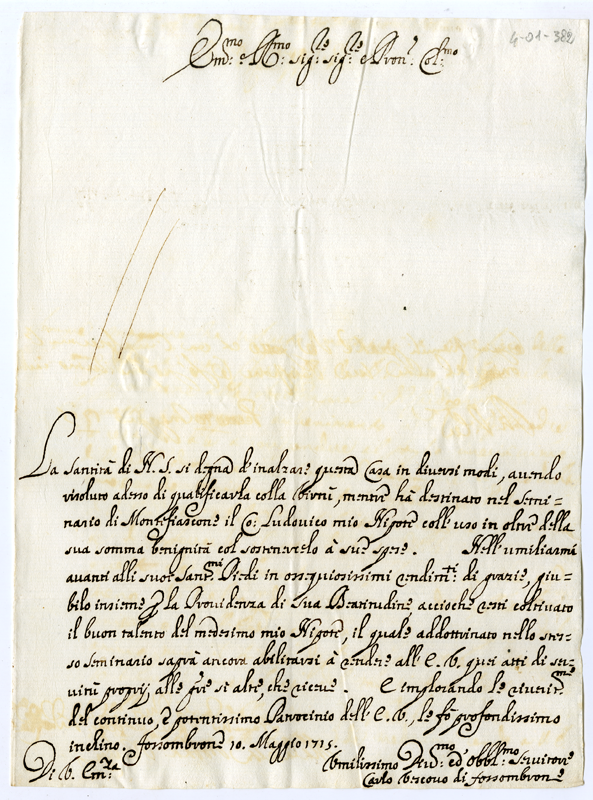 4-01-382
Em.mo e R.mo Sig:re Sig:re e Pron: Col.mo
La Santità di N. S. si degna d'inalzare questa Casa in diversi modi, avendo
risoluto adesso di qualificarla colla Virtù, mentre hà destinato nel Semi=
nario di Montefiascone il Co: Ludovico mio Nipote coll' uso in oltre della
sua somma benignità col sostenervelo à sue spese. Nell' umiliarmi
avanti alli suoi Sant.mi Piedi in ossequiosissimi rendim:ti di grazie, giu=
bilo insieme p la Providenza di Sua Beatitudine, accioche resti coltivato
il buon talento del medesimo mio Nipote, il quale addottrinato nello stes=
so Seminario saprà ancora abilitarsi à rendere all' E. V. quei atti di ser=
vitù proprij alle gře si altre, che riceve. E implorando le riverit.me
del continuo, e potentissimo Patrocinio dell' E. V., le fò profondissimo
inchino. Fossombrone 10. Maggio 1715.
Di V. Em:za
Vmilissimo Div.mo ed Obbl.mo Servitore
Carlo Vescovo di Fossombrone